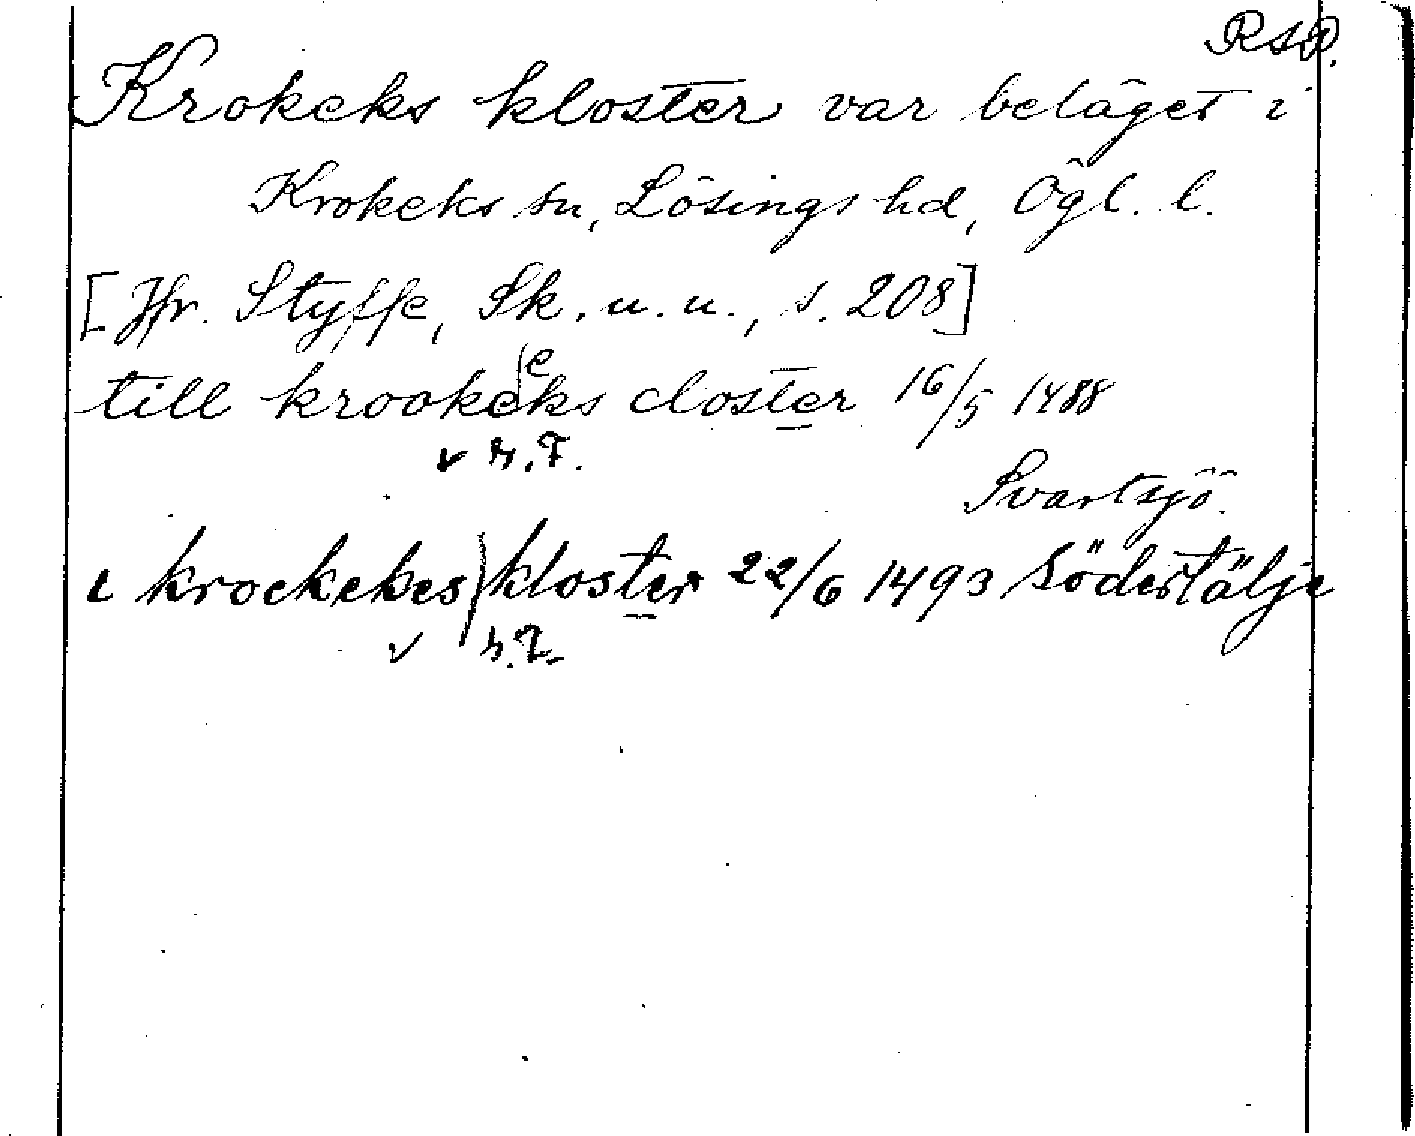 RAP.
Krokeks kloster var beläget i
Krokeks sn, Lösings hd, Ögl. l.
[Jfr. Styffe, Sk. u. u., s. 208]
till krookeeks closter 16/5 1488
Svartsjö.
i krockekes kloster 22/6 1493 Södertälje